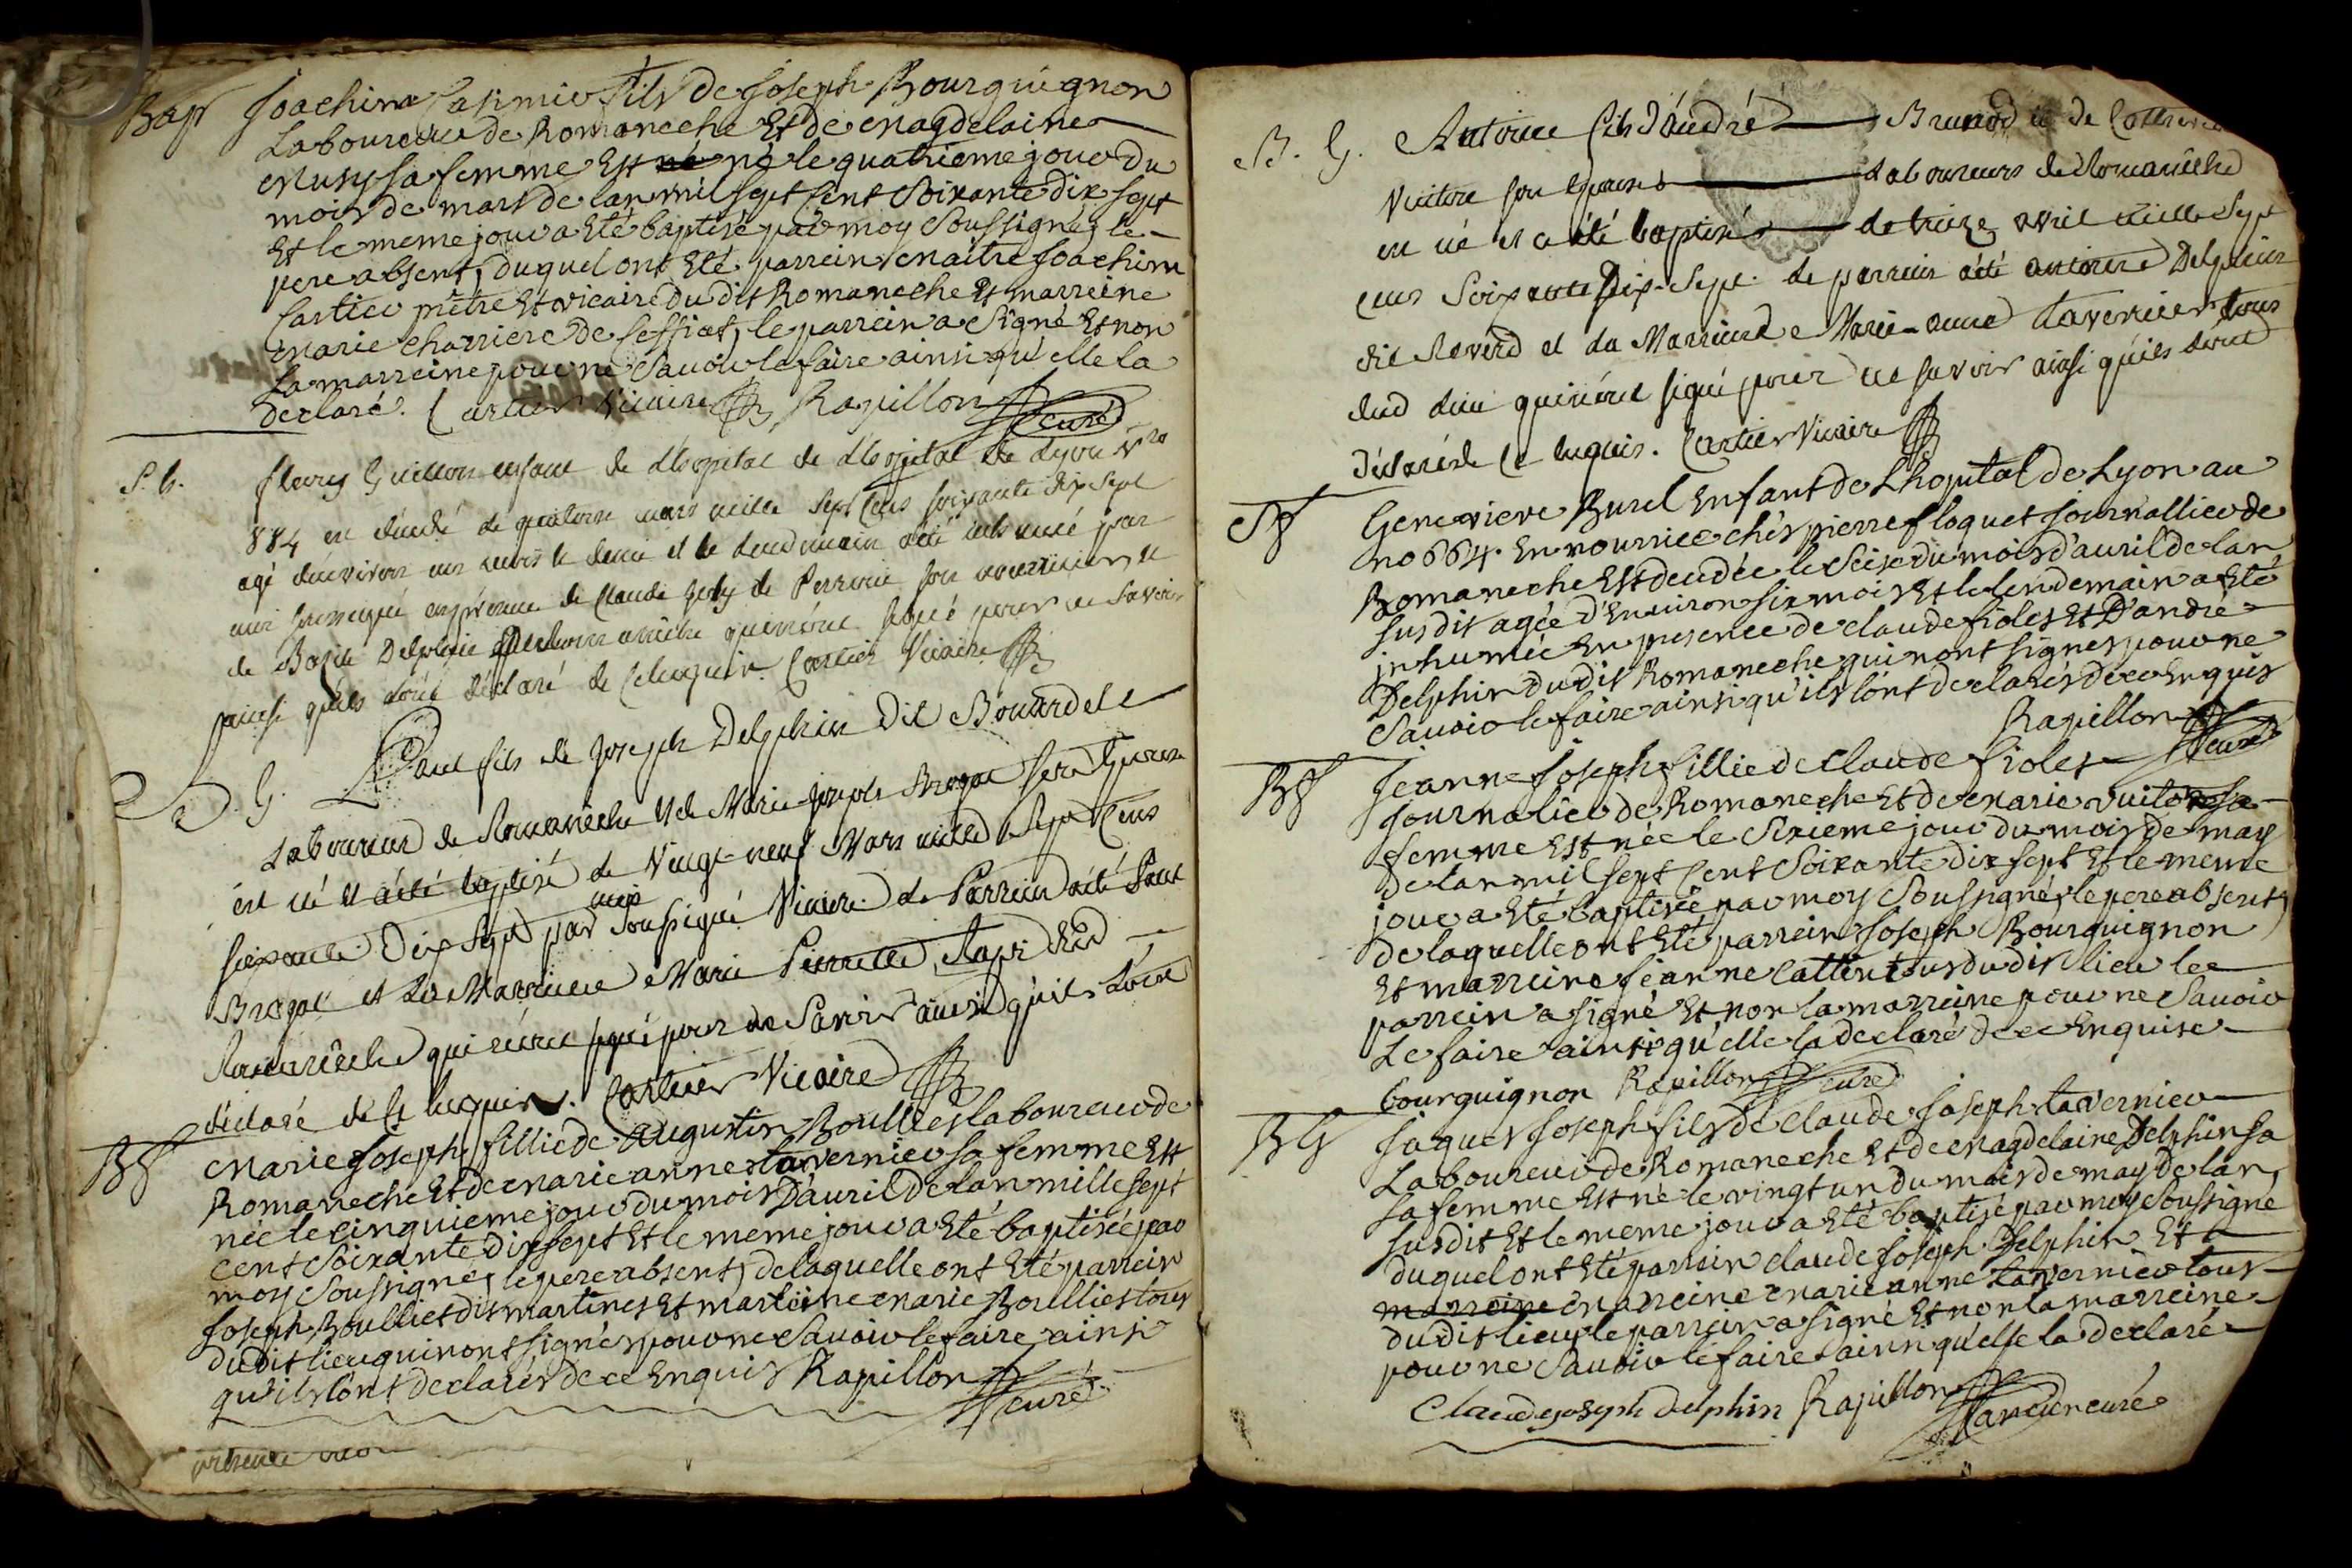 Bap Joachim Casimir fils de Joseph Bourguignon
Laboureur de Romaneche Et de Magdelaine
Musy sa femme Est né né le quatrieme jour du
mois de mars de lan mil sept Cent Soixante dix sept
Et le meme jour a Eté baptisé par moy Soussigné, le
pere absent, duquel ont Eté parrein maitre Joachim
Cartier prêtre Et vicaire du dit Romaneche Et marreine
Marie charriere de Ceffiat, le parrein a Signé Et non
La marreine pour ne Savoir le faire ainsi qu'elle la
declaré. Cartier Vicaire Rapillon
curé
S. G. fleury Guillon enfant de d'hopital de d'hopital de Lyon No
884 en décédé de quatorze mars mille Sept Cens soixante dix Sept
agé d'environ un mois le demi et le lendemain a été inhumé par
moi soussigné en présence de Claude joly de Perronie son nourricier, et
de Basile Delphin de Romanêche qui n'ont signé pour ne Savoir
ainsi qu'ils dont déclaré de Ce enquis. Cartier Vicaire
B. G. Paul fils de Joseph Delphin dit Bouardel
Laboureur de Romanêche & de Marie-josephe Brogat son Epouse
ést né et a été baptisé de Vingt-neuf Mars mille Sept Cens
soixante Dix Sept par moi Soussigné Vicaire. de Parrein a été Paul
Brogat et La Marreine Marie Pierrette
Romanêche qui n'ont signé pour ne Savoir ainsi qu'ils dont
déclaré de Ce enquis. Cartier Vicaire
Bf Marie Joseph fillie de augustin Boullier laboureur de
Romaneche Et de marie anne tavernier sa femme Est
née le cinquieme jour du mois D'auril de lan mille sept
cent Soixante dix sept Et le meme jour a Eté baptisée par
moy Soussigné, le pere absent, de laquelle ont Eté parrein
Joseph Boullier dit martines Et marreine marie Boullier tous
du dit lieu qui n'ont signér pour ne Sauoir le faire ainsi
qu'ils lónt declarés de ce Enquis Rapillon
curé
B. G. Antoine fils d'André Brunod et de
Vuitton son Epouse Laboureurs de Romanêche
en né et a été baptisé de treize avril mille Sept
cens Soixante Dix-Sept. de parrein a été antoine Delphin
dit Reverd et la Marreine Marie-anne tavernier tous
dud lieu qui n'ont signé pour ne savoir ainsi qu'ils dont
Déclaré de Ce enquis. Cartier Vicaire
Sf Genevieve Burel Enfant de L'hopital de Lyon au
no 664. En nourrice chés pierre floquet Journallier de
Romaneche Est decedée le Seise du mois d'auril de lan
susdit agée d'Enuiron six mois Et le lendemain a Eté
jnhumée En presence de claude fiolet Et D'andré
Delphin du dit Romaneche qui n'ont signer pour ne
Sauoir le faire ainsi qu'ils lónt declarés de ce Enquis
Rapillon
curé
Bf Jeanne Joseph fillie de Claude fiolet
Journalier de Romaneche Et de marie vuiton sa
femme Est née le Sixieme jour du mois de may
de lan mil sept Cent Soixante dix sept Et le meme
jour a Eté baptisée par moy Soussigné, le pere absent,
de laquelle ont Eté parrein Joseph Bourguignon
Et marreine Jeanne Cattin tous du dit lieu le
parrein a signé Et non la marreine pour ne Sauoir
Le faire ainsi qu'elle la declaré de ce Enquise
bourguignon Rapillon curé
BG Jaques Joseph fils de Claude Joseph tavernier
Laboureur de Romaneche Et de Magdelaine Delphin sa
Sa femme Est né le vingt un du mois de may de lan
susdit Et le meme jour a Eté baptisé par moy Soussigné
duquel ont Eté parrein claude Joseph Delphin Et
marreine marreine marie anne tavernier tous
du dit lieu, le parrein a signé Et non la marreine
pour ne Sauoir le faire ainsi qu'elle la declaré
Claude joseph delphin Rapillon
ancien curé